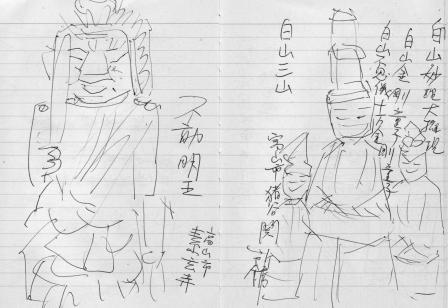 白山妙理大権現
白山金剛童子
白山眷属十万金剛童子
白山三山
富山市猪谷関所館
不動明王
高山市
素玄寺